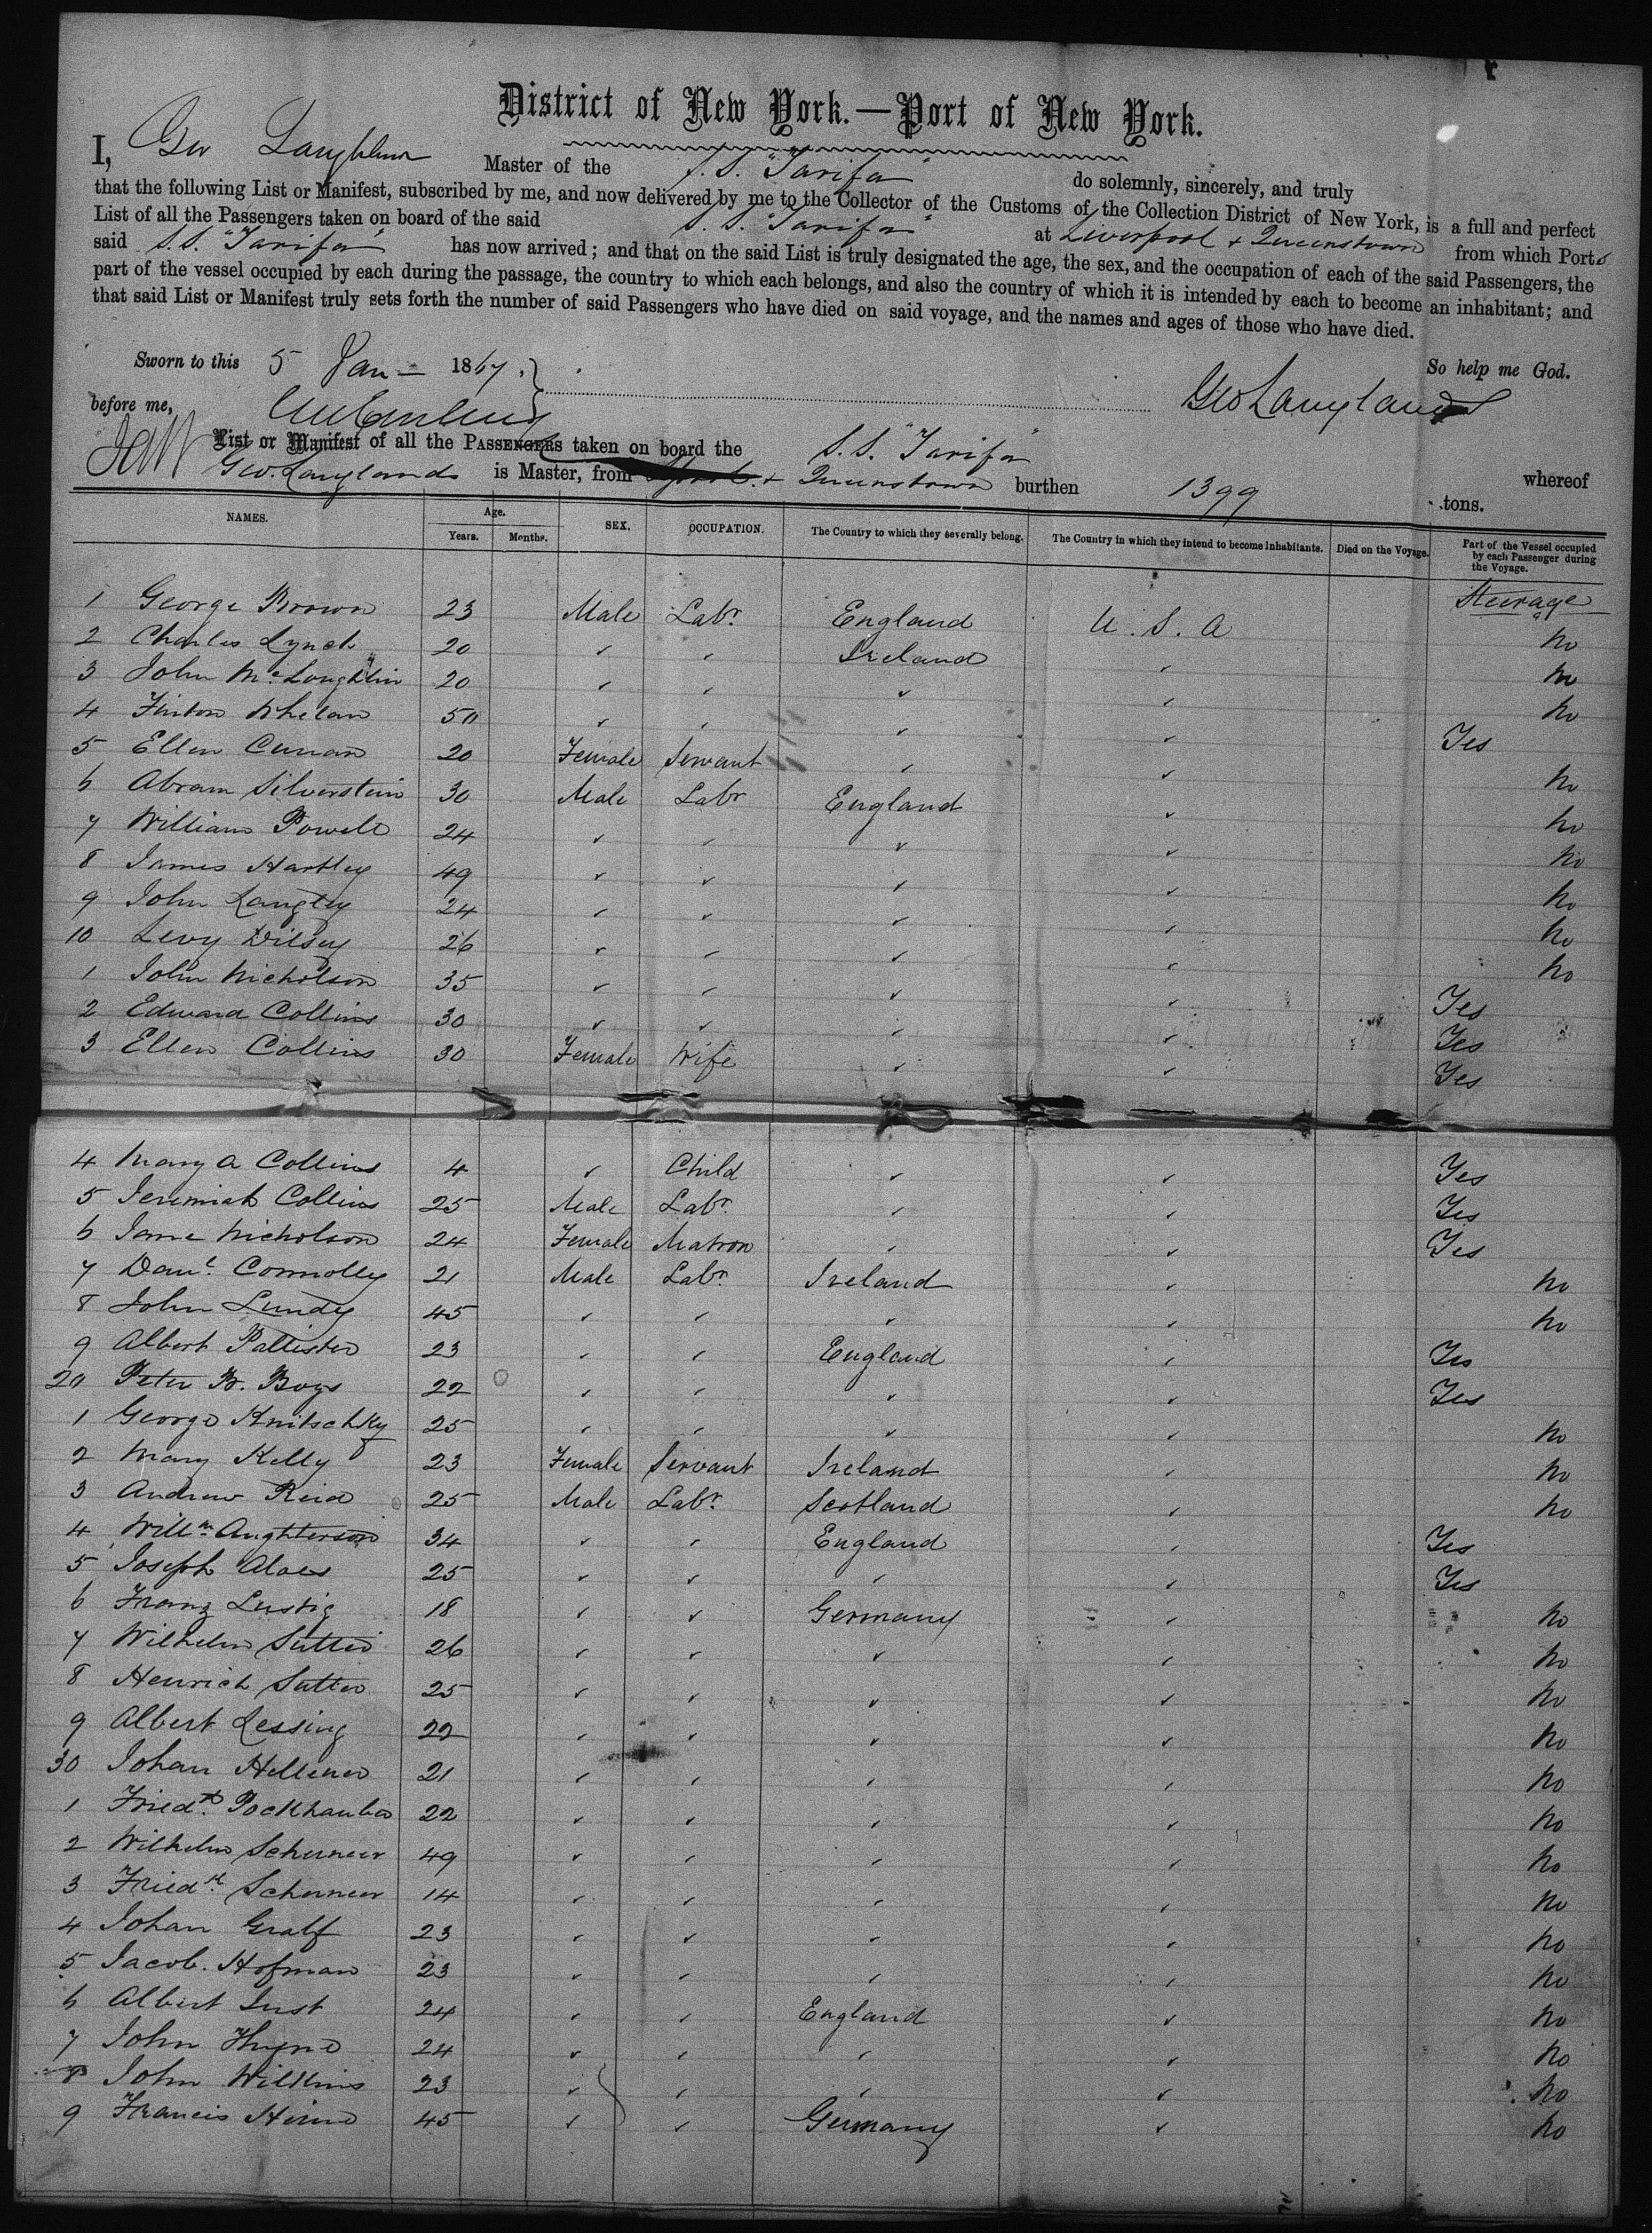 District of New York.—Port of New York.
I, Geo Master of the S.S. "Tarifa" do solemnly, sincerely, and truly
that the following List or Manifest, subscribed by me, and now delivered by me to the Collector of the Customs of the Collection District of New York, is a full and perfect
List of all the Passengers taken on board of the said S.S. "Tarifa" at Liverpool & Queenstown from which Ports
said S.S. "Tarifa" has now arrived; and that on the said List is truly designated the age, the sex, and the occupation of each of the said Passengers, the
part of the vessel occupied by each during the passage, the country to which each belongs, and also the country of which it is intended by each to become an inhabitant; and
that said List or Manifest truly sets forth the number of said Passengers who have died on said voyage, and the names and ages of those who have died.
So help me God.
Sworn to this 5 Jan – 1867.
before me, Geo Langlands
List or Manifest of all the PASSENGERS taken on board the S.S. "Tarifa" whereof
Geo. Langlands is Master, from & Queenstown burthen 1399 tons.
NAMES. Age. Years. Months. SEX. OCCUPATION. The Country to which they severally belong. The Country in which they intend to become Inhabitants. Died on the Voyage. Part of the Vessel occupied by each Passenger during the Voyage.
Steerage
1 George Brown 23 Male Labr. England U.S.A No
2 Charles Lynch 20 " " Ireland " No
3 John McLoughlin 20 " " " " No
4 Finton Whelan 50 " " " " Yes
5 Ellen Curran 20 Female Servant " " No
6 Abram Silverstein 30 Male Labr England " No
7 William Powell 24 " " " " No
8 James Hartley 49 " " " " No
9 John Langley 24 " " " " No
10 Levy Dilsey 26 " " " " No
1 John Nicholson 35 " " " " Yes
2 Edward Collins 30 " " " " Yes
3 Ellen Collins 30 Female Wife " " Yes
4 Mary A Collins 4 " Child " " Yes
5 Jeremiah Collins 25 Male Labr. " " Yes
6 Jane Nicholson 24 Female Matron " " Yes
7 Danl. Connolly 21 Male Labr. Ireland " No
8 John Lundy 45 " " " " No
9 Albert Pallister 23 " " England " Yes
20 Peter B. Boys 22 " " " " Yes
1 George Knitschky 25 " " " " No
2 Mary Kelly 23 Female Servant Ireland " No
3 Andrew Reid 25 Male Labr. Scotland " No
4 Willm. Aughterson 34 " " England " Yes
5 Joseph 25 " " " " Yes
6 Franz Lustig 18 " " Germany " No
7 Wilhelm Sutter 26 " " " " No
8 Henrich Sutter 25 " " " " No
9 Albert Lessing 22 " " " " No
30 Johan 21 " " " " No
1 Friedk. 22 " " " " No
2 Wilhelm 49 " " " " No
3 Friedk. 14 " " " " No
4 Johan Gralf 23 " " " " No
5 Jacob. Hofman 23 " " " " No
6 Albert Lust 24 " " England " No
7 John 24 " " " " No
8 John Wilkins 23 " " " " No
9 Francis 45 " " Germany " No